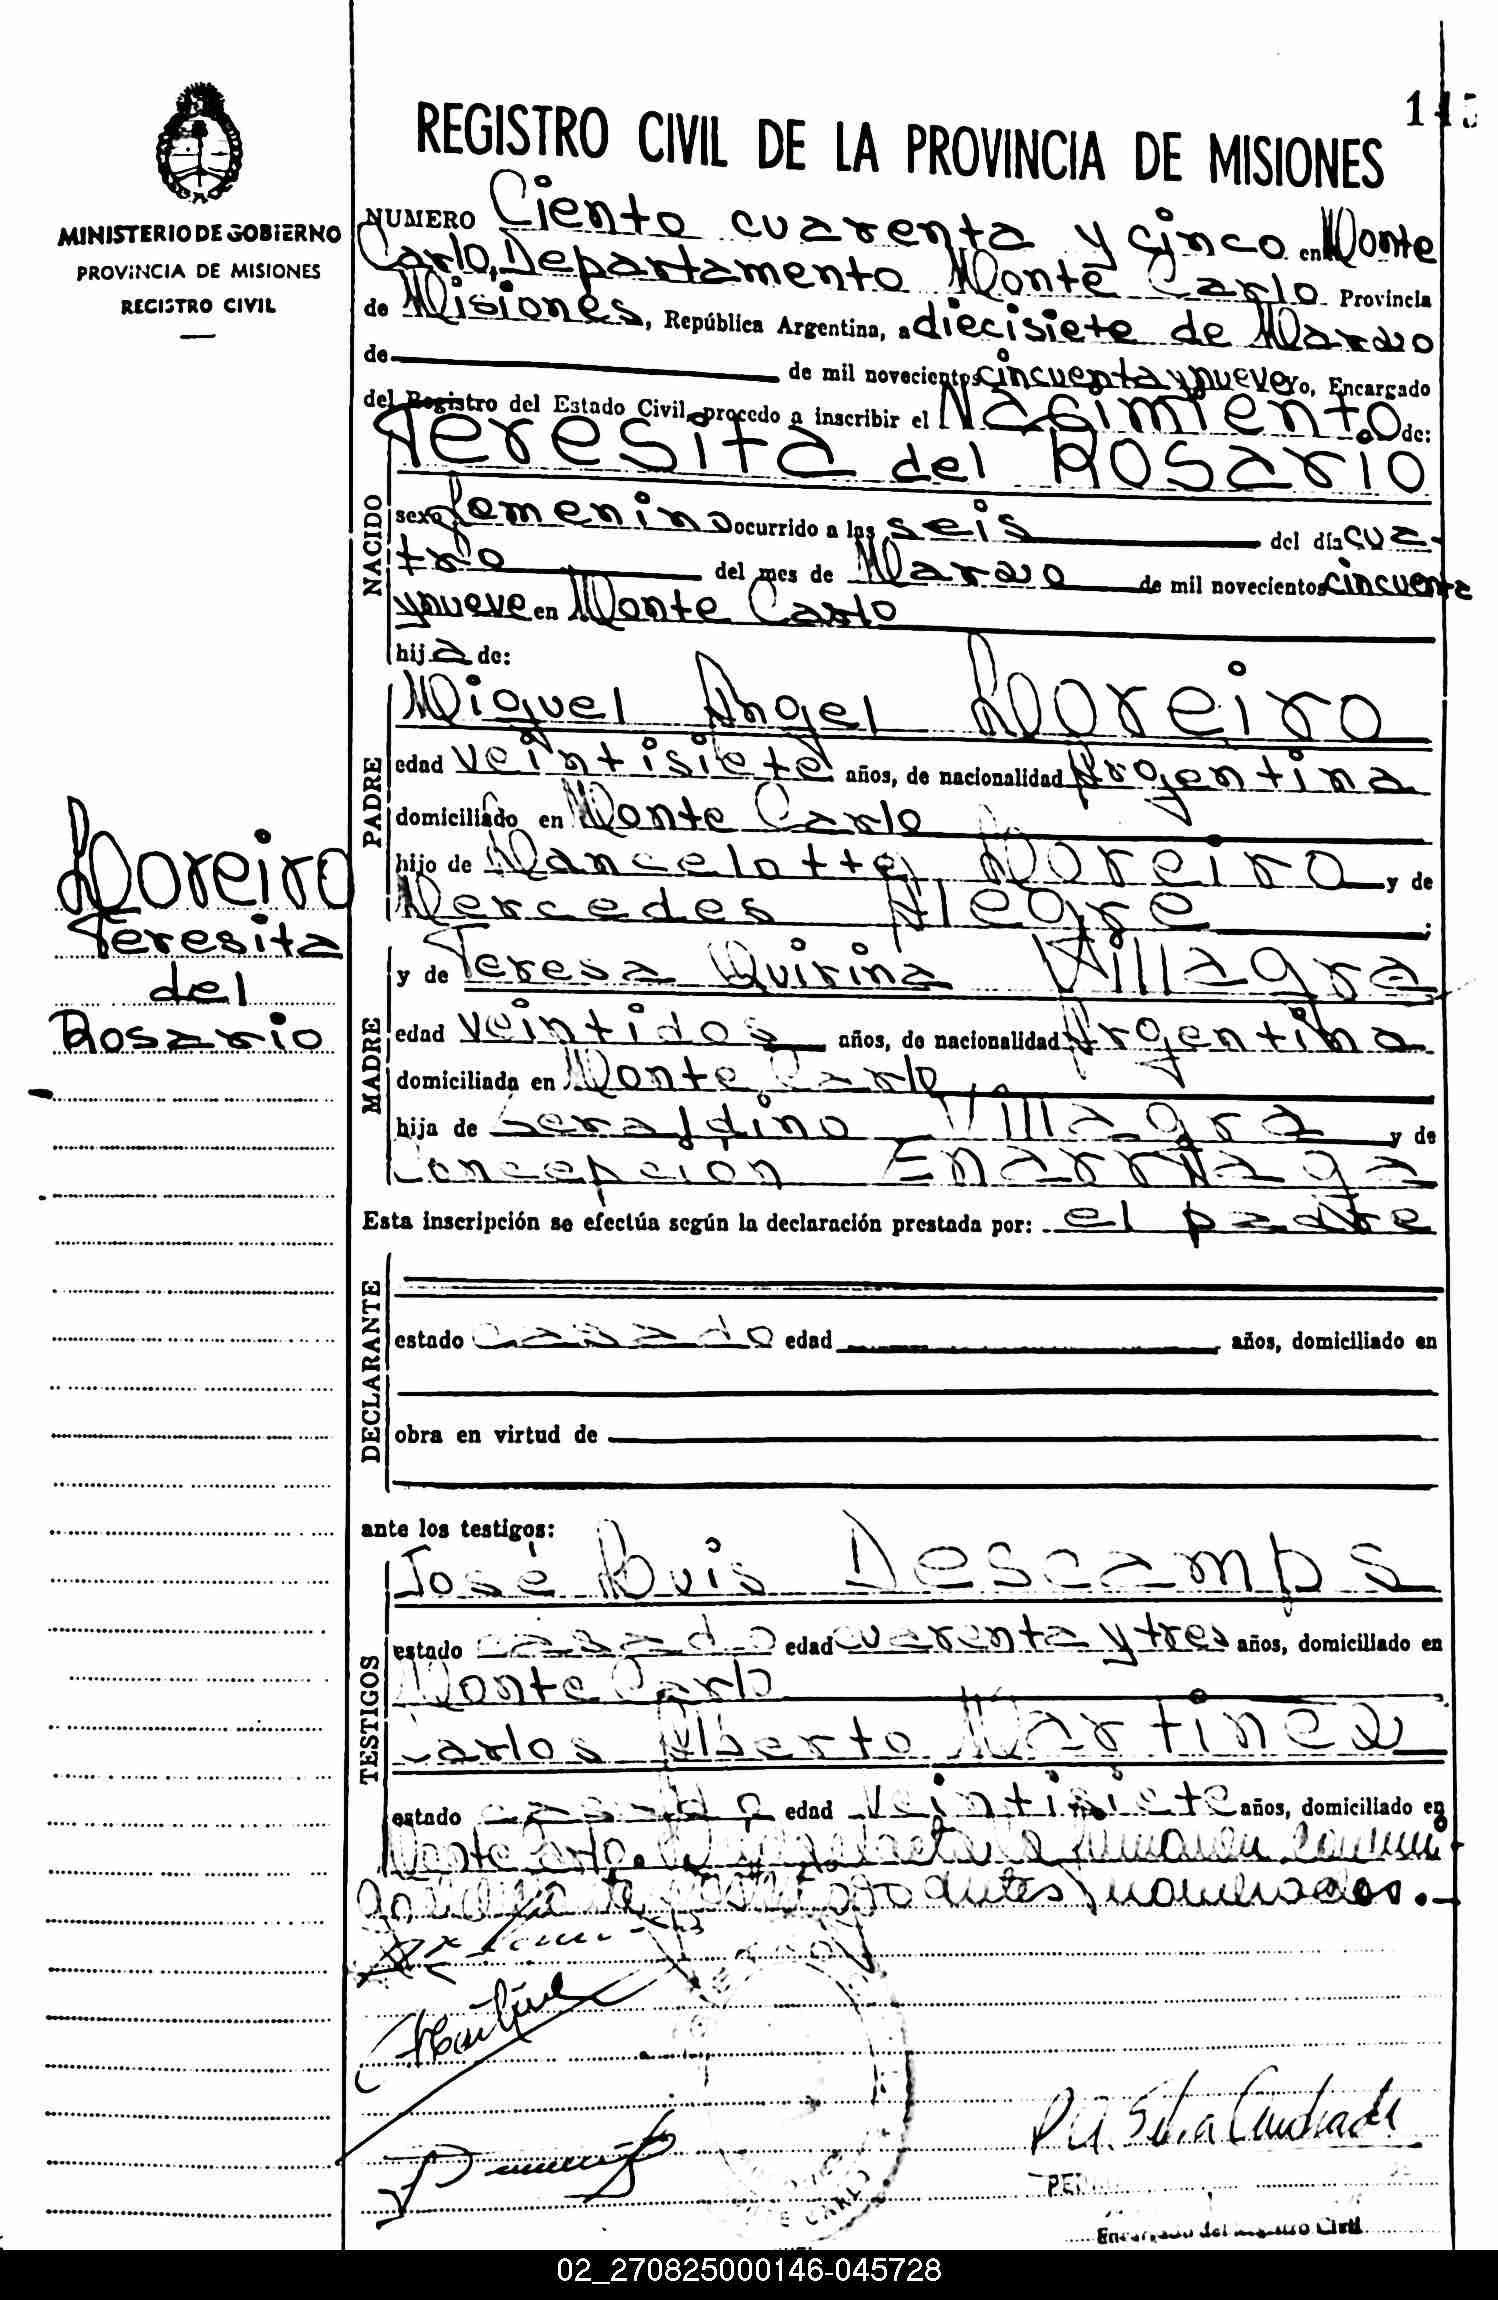 145
REGISTRO CIVIL DE LA PROVINCIA DE MISIONES
MINISTERIO DE GOBIERNO
PROVINCIA DE MISIONES
REGISTRO CIVIL
NUMERO Ciento cuarenta y cinco en Monte
Carlo, Departamento Monte Carlo Provincia
de Misiones, República Argentina, a diecisiete de Marzo
de de mil novecientos cincuenta y nueve yo, Encargado
del Registro del Estado Civil, procedo a inscribir el Nacimiento de:
Teresita del Rosario
NACIDO
sexo femenino ocurrido a las seis del día cua-
tro del mes de Marzo de mil novecientos cincuenta
y nueve en Monte Carlo
hija de:
PADRE
Miguel Angel Moreiro
edad veintisiete años, de nacionalidad Argentina
domiciliado en Monte Carlo
hijo de Mancelotte Moreiro y de
Mercedes Alegre;
MADRE
y de Teresa Quirina Villagra
edad veintidos años, de nacionalidad Argentina
domiciliada en Monte Carlo
hija de Geraldino Villagra y de
Concepción Enarriaga
Moreiro
Teresita
del
Rosario
Esta inscripción se efectúa según la declaración prestada por: el padre
DECLARANTE
estado casado edad años, domiciliado en
obra en virtud de
ante los testigos:
TESTIGOS
José Luis Descamps
estado casado edad cuarenta y tres años, domiciliado en
Monte Carlo
Carlos Alberto Martinez
estado casado edad veintisiete años, domiciliado en
Monte Carlo. el acta la firman conmi
go antes nombrados.-
Encargado del Registro Civil
02_270825000146-045728